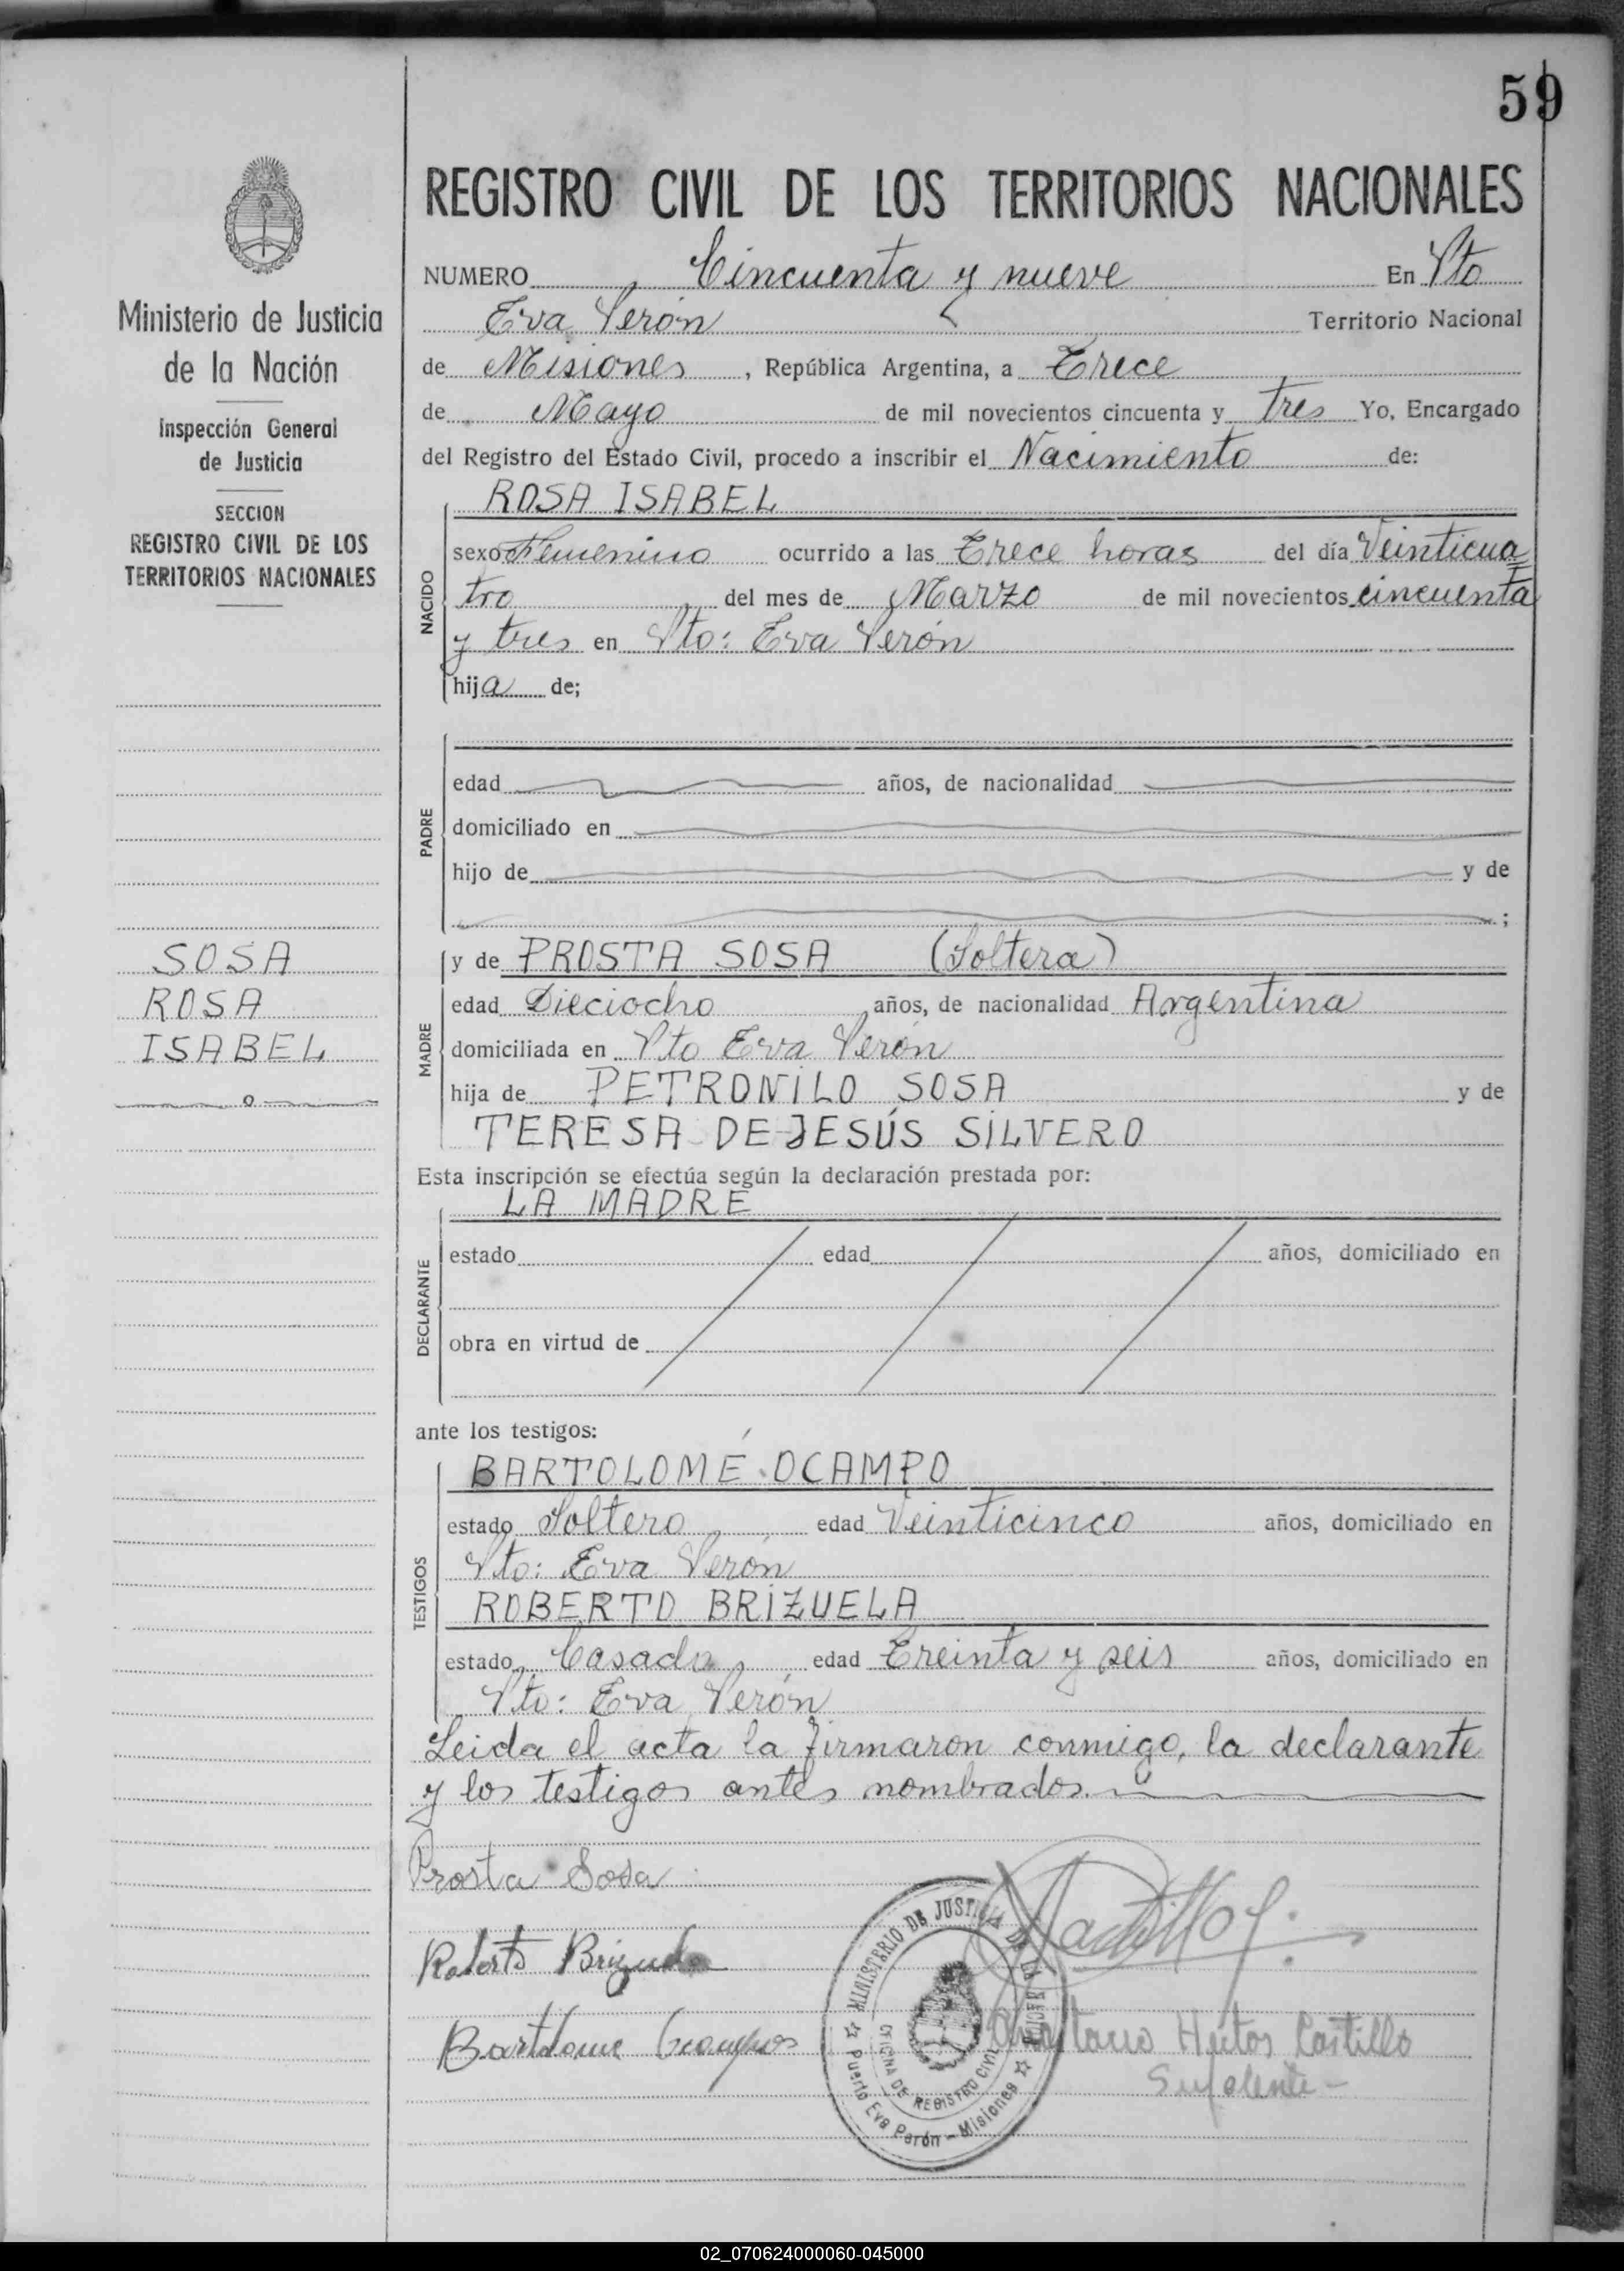 59
REGISTRO CIVIL DE LOS TERRITORIOS NACIONALES
Ministerio de Justicia
de la Nación
Inspección General
de Justicia
SECCION
REGISTRO CIVIL DE LOS
TERRITORIOS NACIONALES
SOSA
ROSA
ISABEL
NUMERO Cincuenta y nueve En Pto
Eva Perón Territorio Nacional
de Misiones, República Argentina, a Trece
de Mayo de mil novecientos cincuenta y tres Yo, Encargado
del Registro del Estado Civil, procedo a inscribir el Nacimiento de:
NACIDO
ROSA ISABEL
sexo Femenino ocurrido a las Trece horas del día Veinticua
tro del mes de Marzo de mil novecientos cincuenta
y tres en Pto: Eva Perón
hija de;
PADRE
edad años, de nacionalidad
domiciliado en
hijo de y de
;
MADRE
y de PROSTA SOSA (Soltera)
edad Dieciocho años, de nacionalidad Argentina
domiciliada en Pto Eva Perón
hija de PETRONILO SOSA y de
TERESA DE JESÚS SILVERO
Esta inscripción se efectúa según la declaración prestada por:
DECLARANTE
LA MADRE
estado edad años, domiciliado en
obra en virtud de
ante los testigos:
TESTIGOS
BARTOLOMÉ OCAMPO
estado Soltero edad Veinticinco años, domiciliado en
Pto: Eva Perón
ROBERTO BRIZUELA
estado Casado edad Treinta y seis años, domiciliado en
Pto: Eva Perón
Leida el acta la firmaron conmigo, la declarante
y los testigos antes nombrados.
Prosta Sosa
Roberto Brizuela
Bartolome Ocampos
MINISTERIO DE JUSTICIA DE LA NACION
OFICINA DE REGISTRO CIVIL
Puerto Eva Perón - Misiones
Castillo
Suplente -
02_070624000060-045000